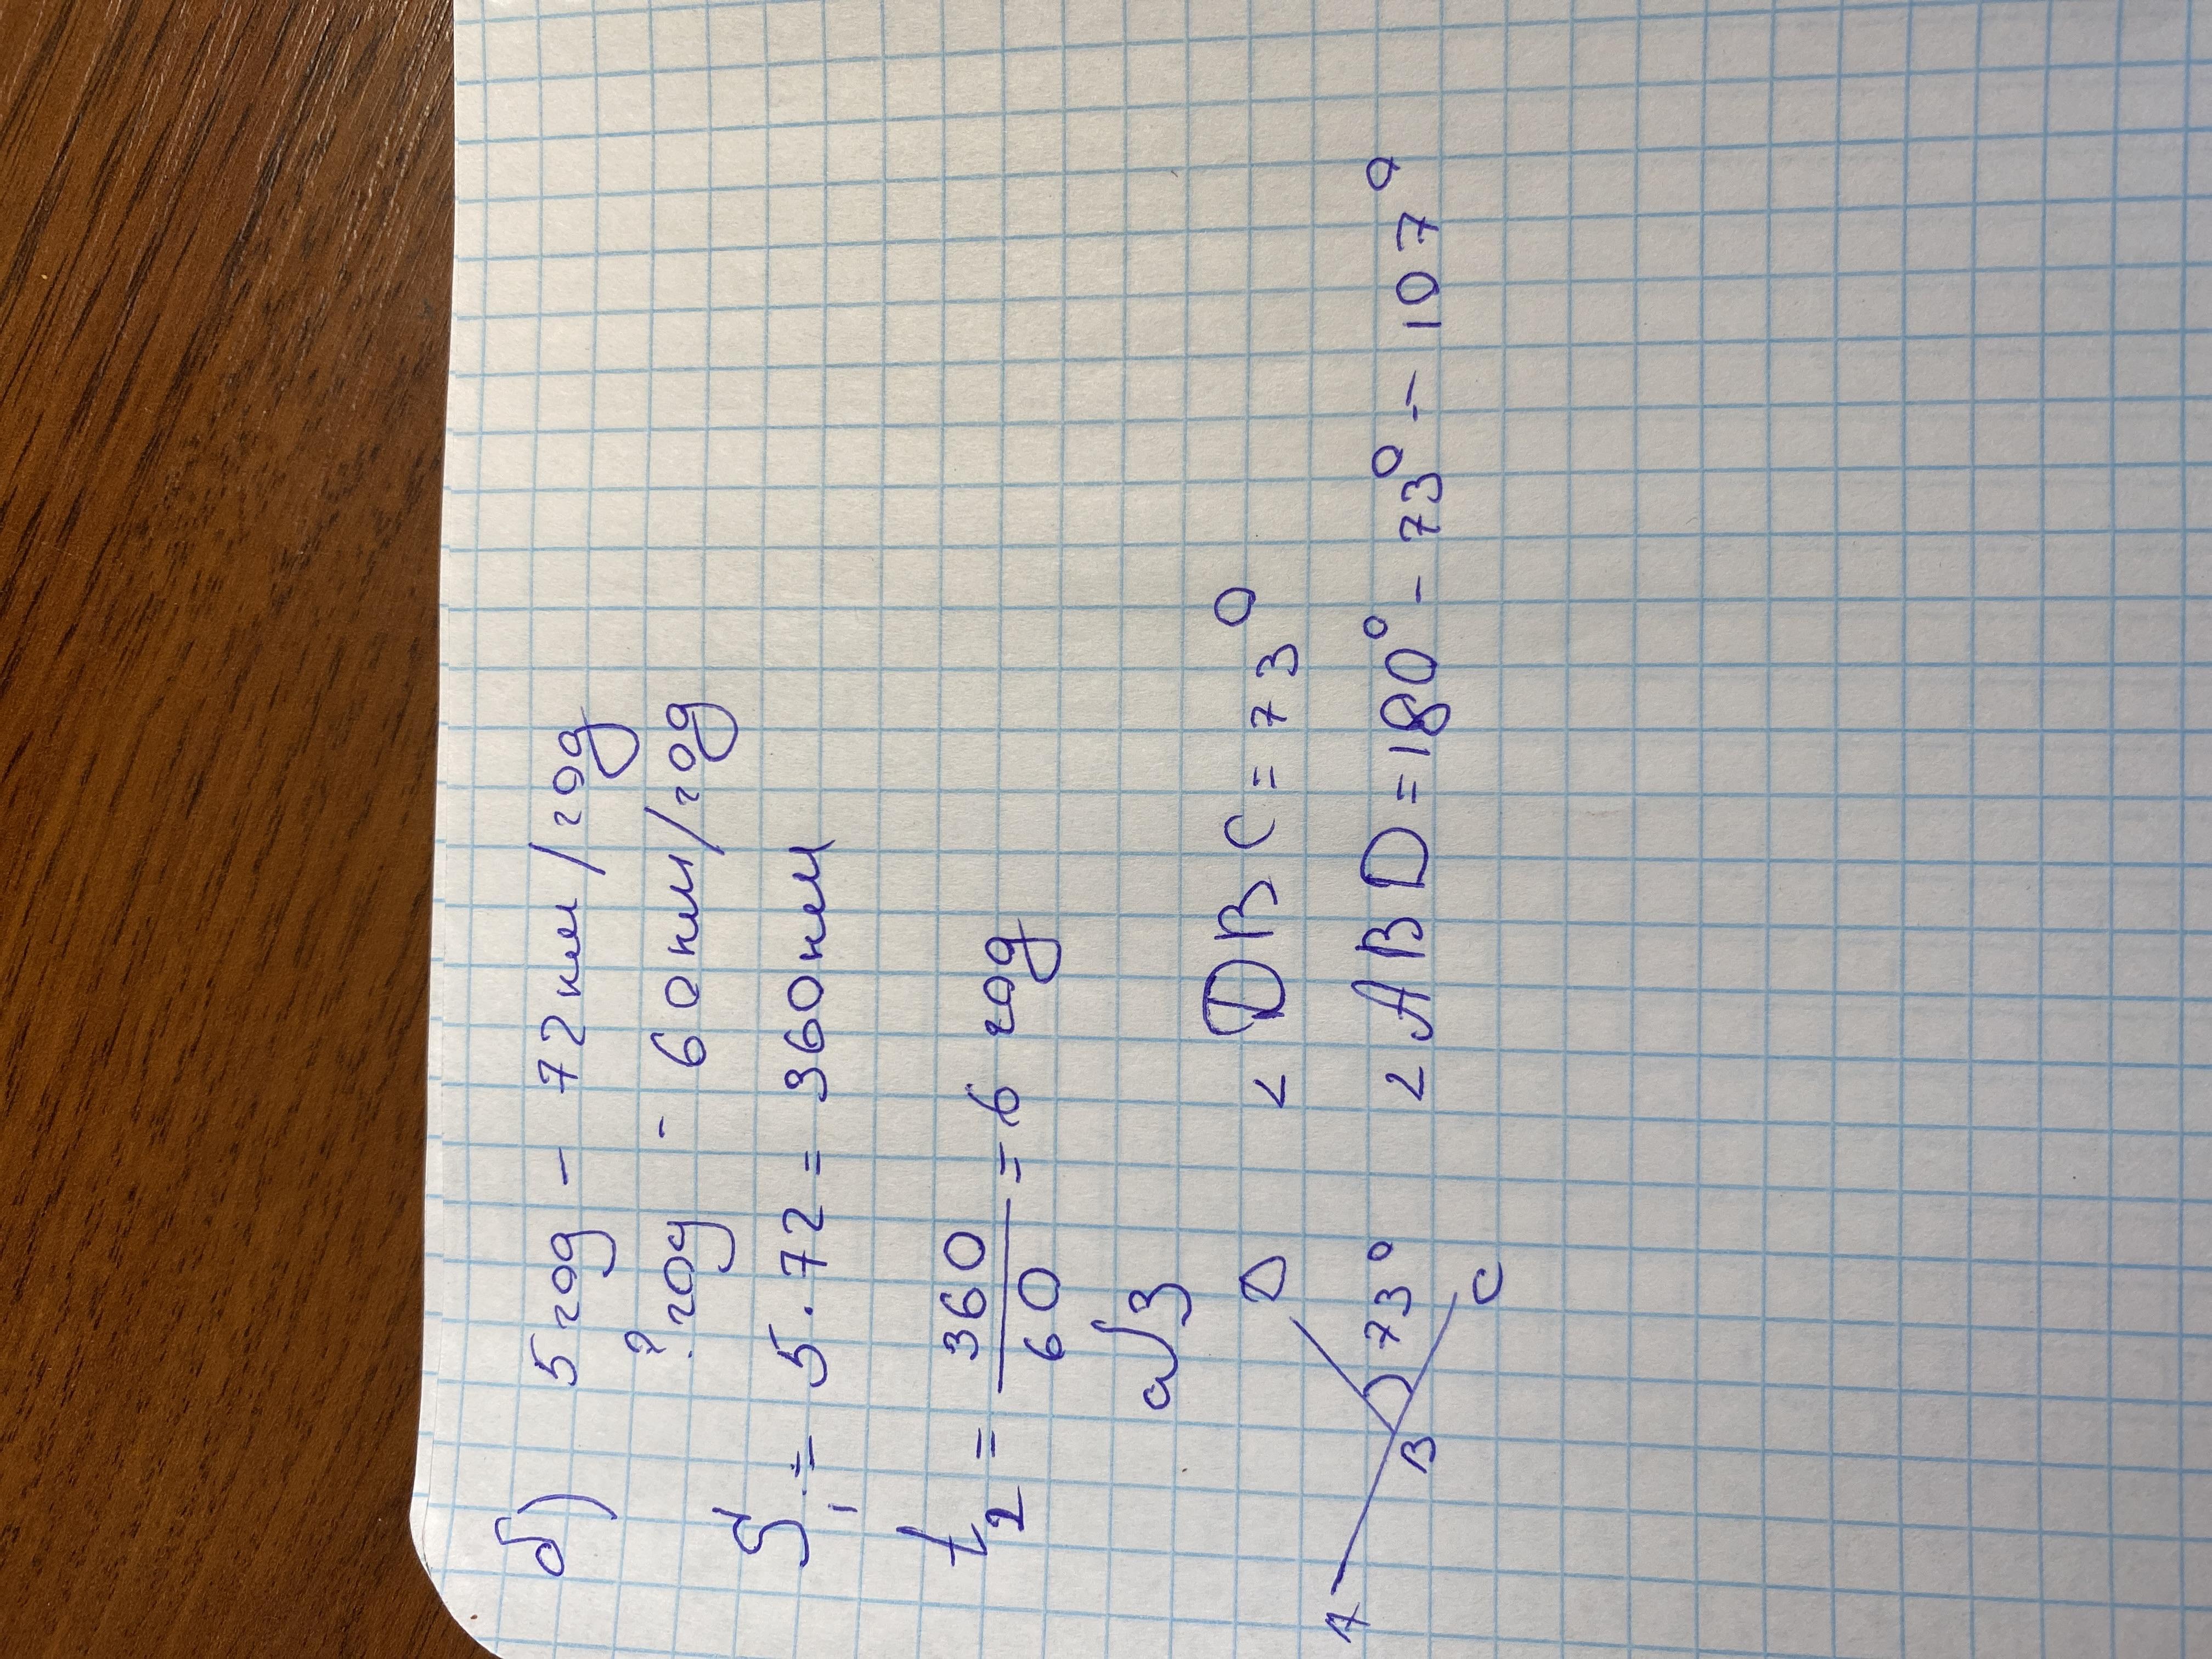 б)
5 год - 72 км/год
? год - 60 км/год
S₁ = 5 · 72 = 360 км
t₂ = 360/60 = 6 год
№3
A B D C 73°
∠ DBC = 73°
∠ ABD = 180° - 73° - 107°